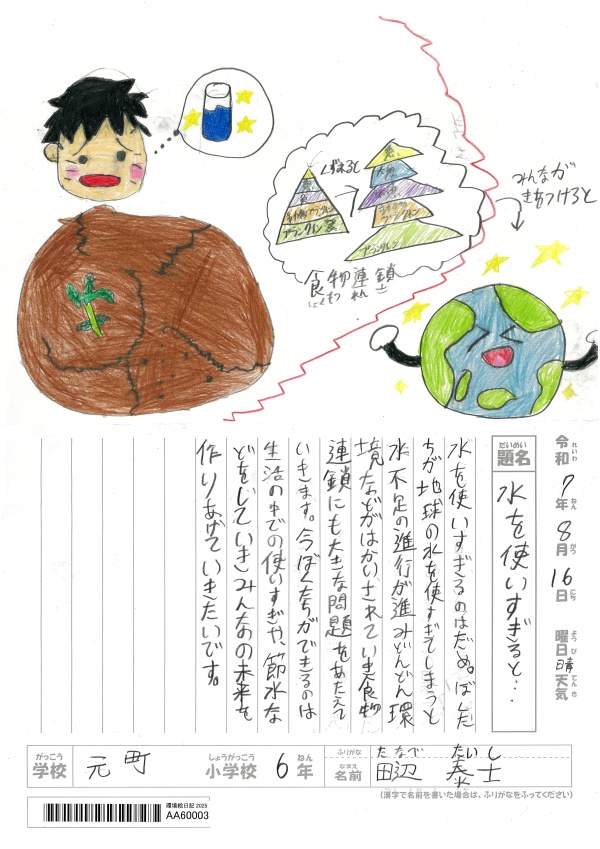 くずれると
プランクトン
プランクトン
食物連鎖
しょくもつ れん さ
みんなが
きをつけると
令和7年8月16日 曜日 晴 天気
れいわ ねん がつ にち ようび てんき
だいめい
題名 水を使いすぎると…
水を使いすぎるのはだめ。ぼくた
ちが地球の水を使すぎてしまうと
水不足の進行が進みどんどん環
境などがはかいされていき食物
連鎖にも大きな問題をあたえて
いきます。今ぼくたちができるのは
生活の中での使いすぎや、節水な
どをしていきみんなの未来を
作りあげていきたいです。
がっこう しょうがっこう ねん ふりがな たなべ たいし
学校 元町 小学校 6年 なまえ 名前 田辺 泰士
(漢字で名前を書いた場合は、ふりがなをふってください)
環境絵日記 2025
AA60003